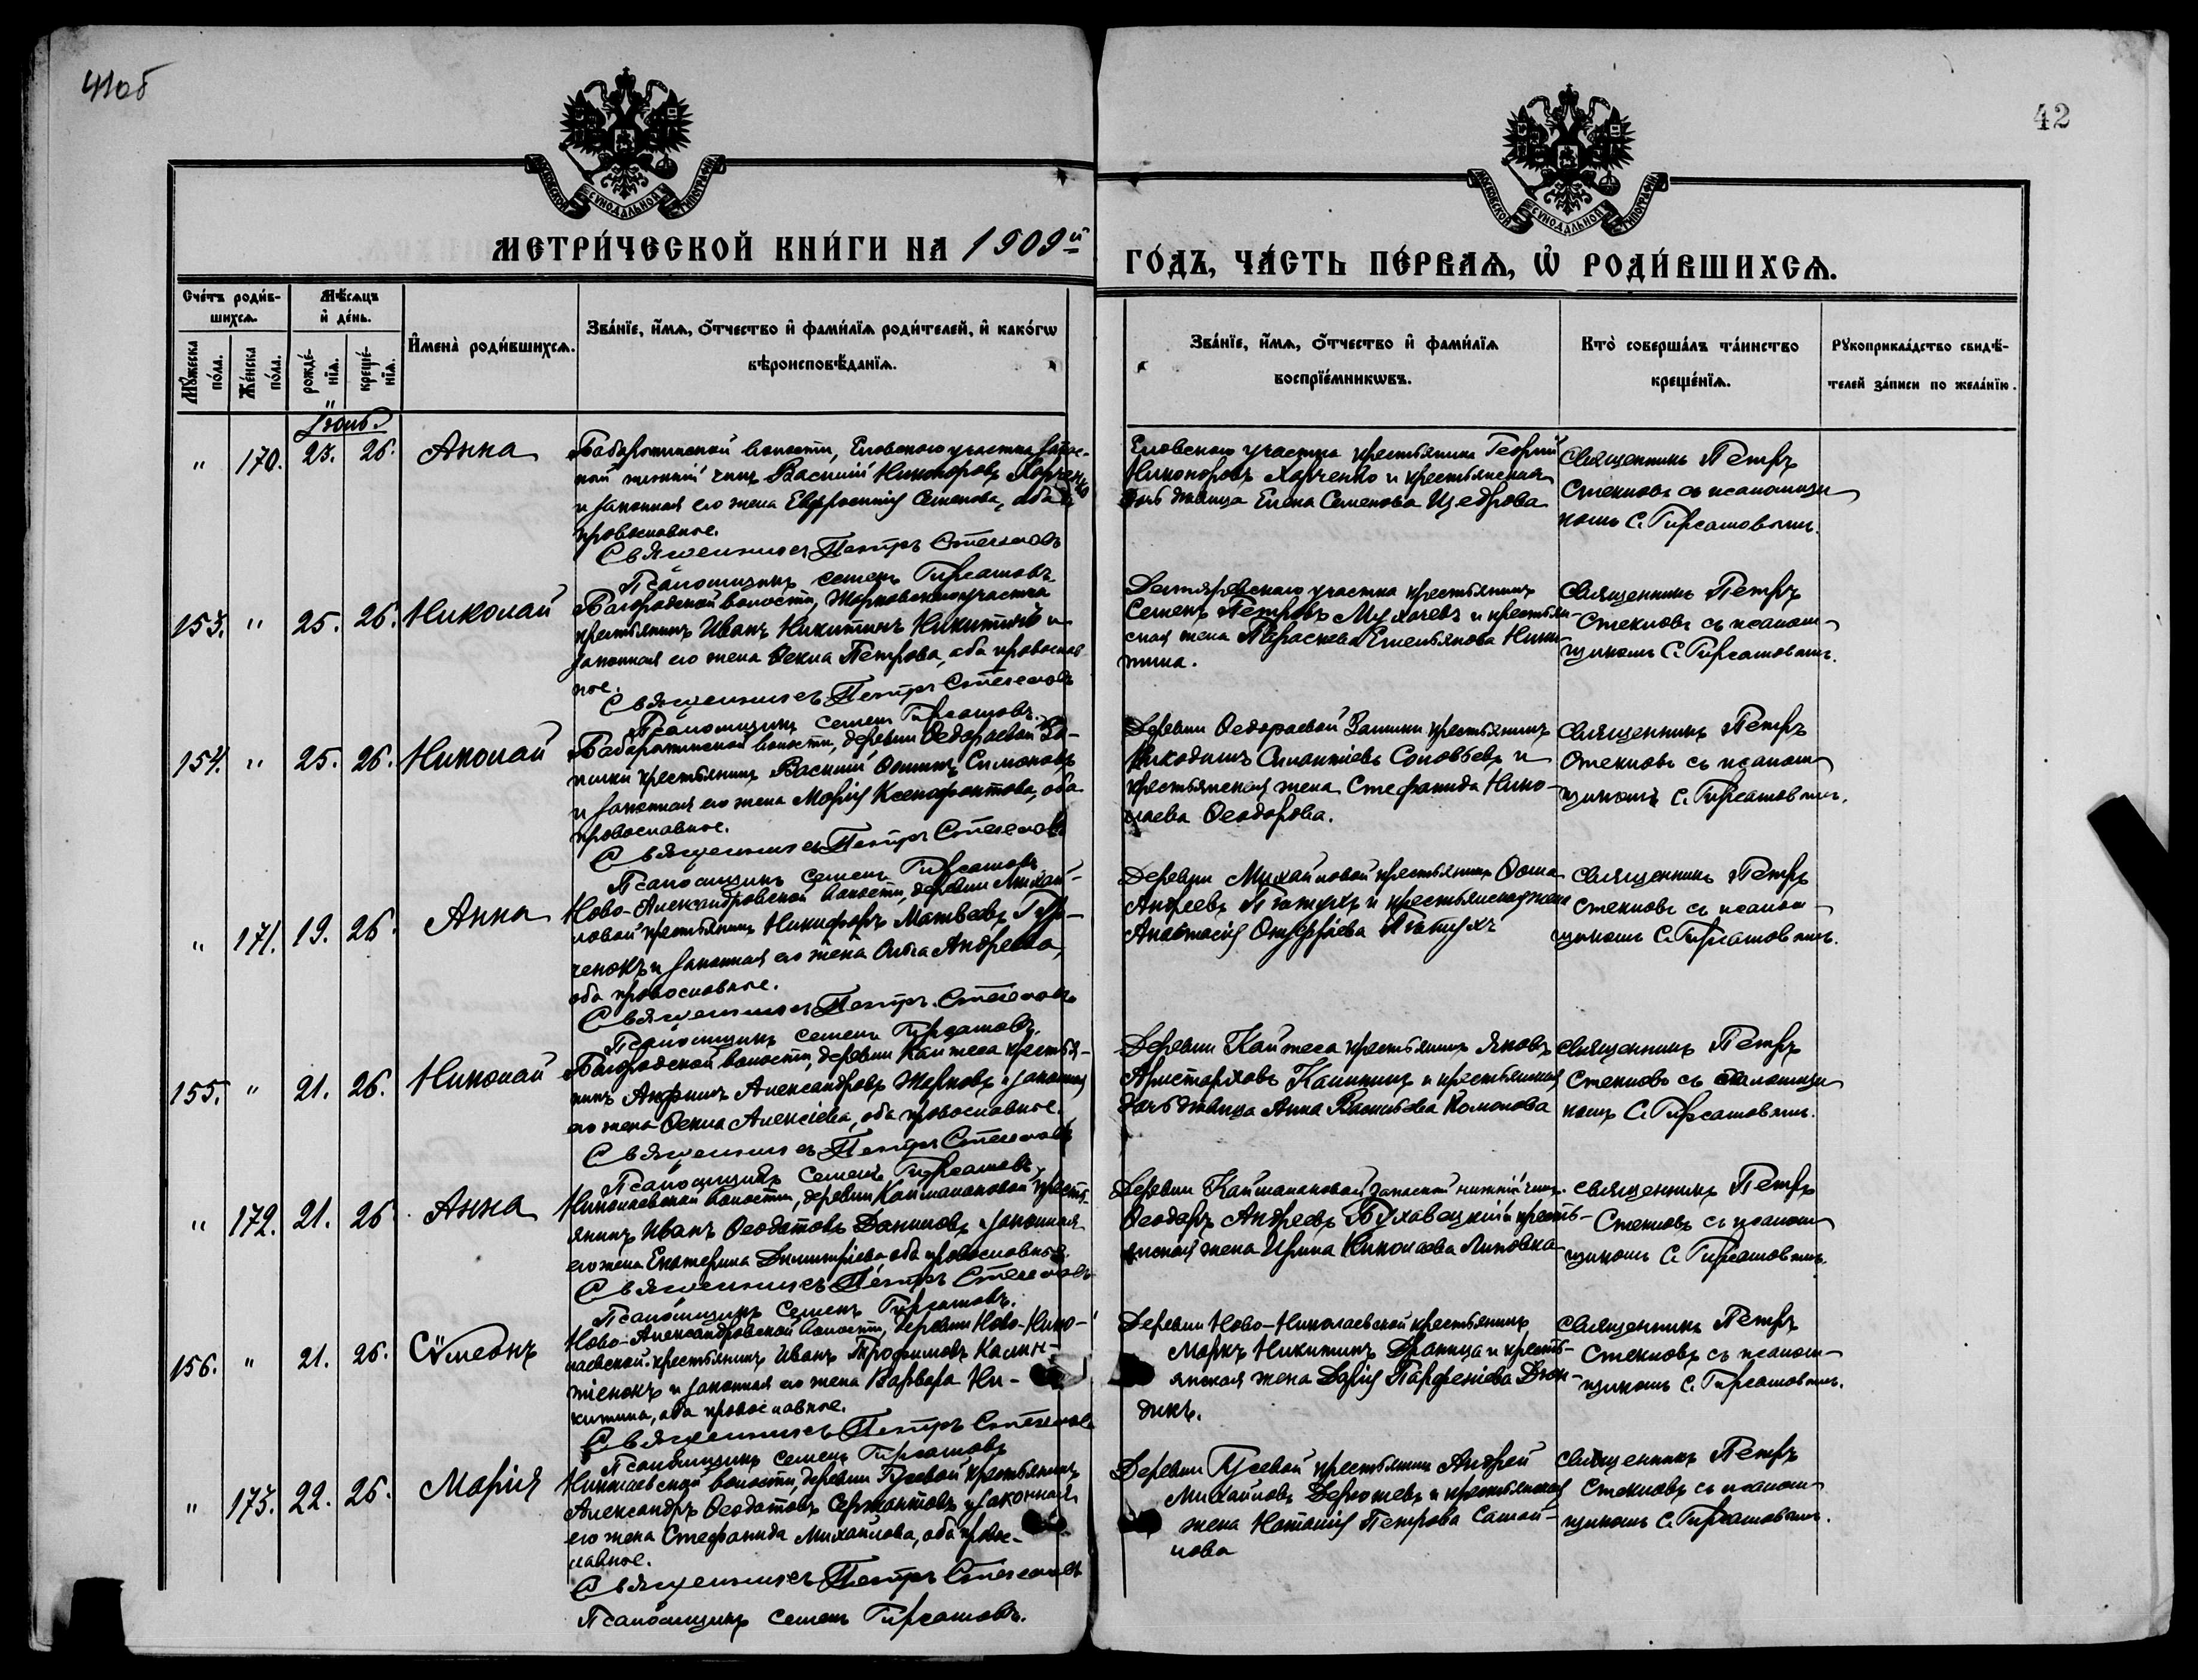 41об
42
МОСКОВСКОЙ СУНОДАЛЬНОЙ ТИПОГРАФІИ
МОСКОВСКОЙ СУНОДАЛЬНОЙ ТИПОГРАФІИ
МЕТРИ́ЧЕСКОЙ КНИ́ГИ НА 1909й
ГО́ДЪ, ЧА́СТЬ ПЕ́РВАѦ, Ѡ҆ РОДИ́ВШИХСѦ.
Сче́тъ роди́в-
шихсѧ.
Мѣ́сѧцъ
и҆ де́нь.
Мꙋ́жеска по́ла.
Же́нска по́ла.
рожде́-нїѧ.
креще́-нїѧ.
И҆мена̀ роди́вшихсѧ.
Зва́нїе, и҆́мѧ, ѻ҆́тчество и҆ фами́лїѧ роди́телей, и҆ како́гѡ
вѣроисповѣ́данїѧ.
Зва́нїе, и҆́мѧ, ѻ҆́тчество и҆ фами́лїѧ
воспрїе́мникѡвъ.
Кто̀ соверша́лъ та́инство
креще́нїѧ.
Рꙋкоприкла́дство свидѣ́-
телей за́писи по жела́нїю.
" 170. 23. 26. Анна
волости, Еловского участка запас-
ной нижній чинъ Василій Никоноровъ Харченко
и законная его жена Евфросинія Семенова, оба
православные.
Священникъ Петръ Стеклов
Псаломщикъ Семенъ Гирсамовъ
Еловского участка крестьянинъ Георгій
Никоноровъ Харченко и крестьянская
дочь дѣвица Елена Семенова Щедрова
Священникъ Петръ
Стекловъ съ псаломщи
комъ С. Гирсамовымъ.
153. " 25. 26. Николай
волости, Жерновского участка
крестьянинъ Иванъ Никитинъ Никитинъ и
законная его жена Ѳекла Петрова, оба православ
ные.
Священникъ Петръ Стеклов
Псаломщикъ Семенъ Гирсамовъ.
участка крестьянинъ
Семенъ Петровъ Мухачевъ и крестьян-
ская жена Параскева Емельянова Ники
тина.
Священникъ Петръ
Стекловъ съ псалом
щикомъ С. Гирсамовымъ.
154. " 25. 26. Николай
волости, деревни Ѳедораевой За-
имки крестьянинъ Василій Ѳоминъ Симоновъ
и законная его жена Марія Ксенофонтова, оба
православные.
Священникъ Петръ Стеклов
Псаломщикъ Семенъ Гирсамовъ
Деревни Ѳедораевой Заимки крестьянинъ
Никодимъ Соловьевъ и
крестьянская жена Стефанида Нико-
лаева Ѳеодорова.
Священникъ Петръ
Стекловъ съ псалом
щикомъ С. Гирсамовымъ.
" 171. 19. 26. Анна
Ново-Александровской волости, деревни Михай-
ловой крестьянинъ Никифоръ Матвеевъ Гур-
ченокъ и законная его жена Ольга Андреева,
оба православные.
Священникъ Петръ Стекловъ
Псаломщикъ Семенъ Гирсамовъ.
Деревни Михайловой крестьянинъ Ѳома
Андреевъ Пятухъ и крестьянская жена
Анастасія Онуфріева Пятухъ
Священникъ Петръ
Стекловъ съ псалом-
щикомъ С. Гирсамовымъ.
155. " 21. 26. Николай
волости, деревни Кайтеса крестья-
нинъ Анфимъ Александровъ Жерновъ и законная
его жена Ѳекла Алексіева, оба православные.
Священникъ Петръ Стеклов
Псаломщикъ Семенъ Гирсамовъ
Деревни Кайтеса крестьянинъ Яковъ
Аристарховъ Калининъ и крестьянская
дочь дѣвица Анна Васильева
Священникъ Петръ
Стекловъ съ псаломщи
комъ С. Гирсамовымъ.
" 172. 21. 26. Анна
Николаевской волости, деревни Кайманаковой кресть
янинъ Иванъ Ѳеодотовъ Даниловъ и законная
его жена Екатерина Димитріева, оба православные.
Священникъ Петръ Стекловъ
Псаломщикъ Семенъ Гирсамовъ.
Деревни Кайманаковой запасной нижній чинъ
Ѳеодоръ Андреевъ и кресть-
янская жена Ирина Николаева Линовка
Священникъ Петръ
Стекловъ съ псалом
щикомъ С. Гирсамовымъ.
156. " 21. 26. Сѵмеонъ
Ново-Александровской волости, деревни Ново-Нико-
лаевской крестьянинъ Иванъ Трофимовъ
и законная его жена Варвара Ни-
китина, оба православные.
Священникъ Петръ Стеклов
Псаломщикъ Семенъ Гирсамовъ
Деревни Ново-Николаевской крестьянинъ
Маркъ Никитинъ Драница и кресть-
янская жена Дарія Парфеніева Дюн-
дикъ.
Священникъ Петръ
Стекловъ съ псалом-
щикомъ С. Гирсамовымъ.
" 173. 22. 26. Марія
Николаевской волости, деревни Гусевой крестьянинъ
Александръ Ѳеодотовъ Сержантовъ и законная
его жена Стефанида Михайлова, оба правос-
лавные.
Священникъ Петръ Стекловъ
Псаломщикъ Семенъ Гирсамовъ.
Деревни Гусевой крестьянинъ Андрей
Михайловъ и крестьянская
жена Наталія Петрова Самой-
лова
Священникъ Петръ
Стекловъ съ псалом
щикомъ С. Гирсамовымъ.